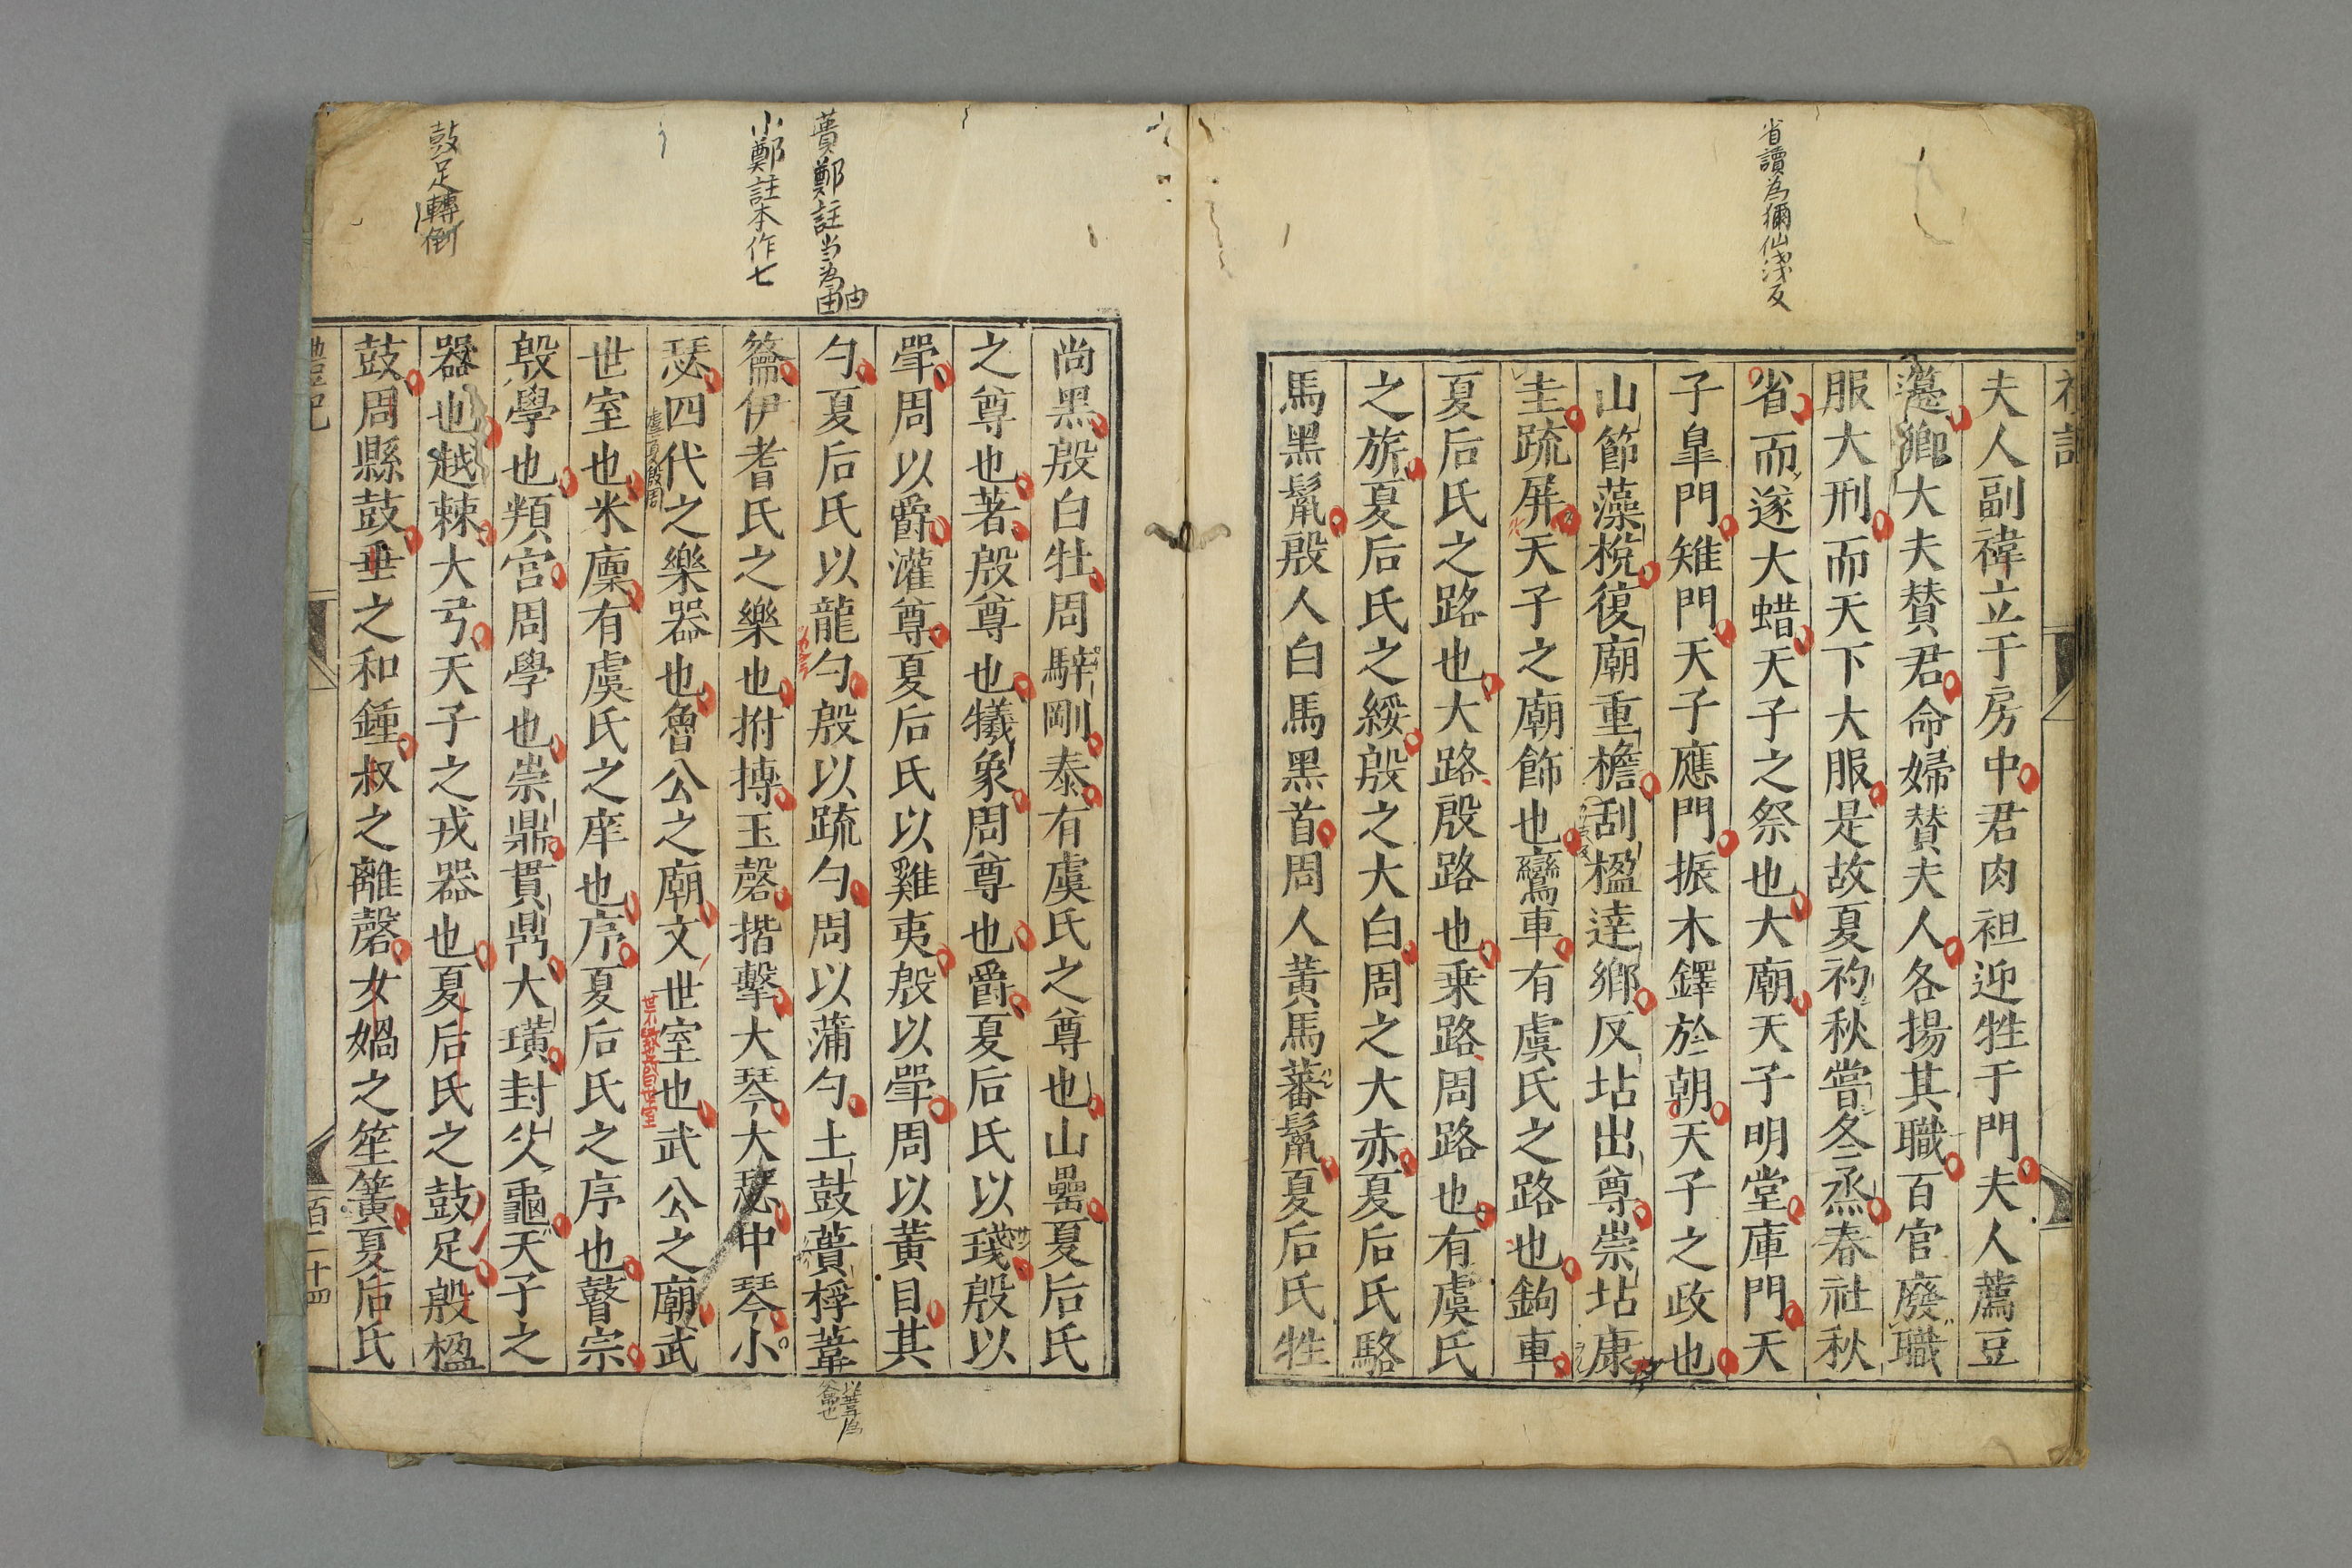 省讀為獮仙淺反
禮記
夫人副褘立于房中君肉袒迎牲于門夫人薦豆
籩卿大夫賛君命婦賛夫人各揚其職百官廢職
服大刑而天下大服是故夏礿秋嘗冬烝春社秋
省而遂大蜡天子之祭也大廟天子明堂庫門天
子皐門雉門天子應門振木鐸於朝天子之政也
山節藻梲復廟重檐刮楹達鄉反坫出尊崇坫康
圭䟽屏天子之廟飾也鸞車有虞氏之路也鉤車
夏后氏之路也大路殷路也乗路周路也有虞氏
之旂夏后氏之綏殷之大白周之大赤夏后氏駱
馬黑鬛殷人白馬黑首周人黃馬蕃鬛夏后氏牲
蕢鄭註当為凷
由
小鄭註本作七
鼓足轉倒
尚黑殷白牡周騂剛泰有虞氏之尊也山罍夏后氏
之尊也著殷尊也犧象周尊也爵夏后氏以琖殷以
斝周以爵灌尊夏后氏以雞夷殷以斝周以黃目其
勺夏后氏以龍勺殷以䟽勺周以蒲勺土鼓蕢桴葦
以葦為籥也
籥伊耆氏之樂也拊搏玉磬揩擊大琴大瑟中琴小
瑟四代之樂器也魯公之廟文世室也武公之廟武
虞夏殷周
世不毀曰世室
世室也米廩有虞氏之庠也序夏后氏之序也瞽宗
殷學也頖宮周學也崇鼎貫鼎大璜封父龜天子之
器也越棘大弓天子之戎器也夏后氏之鼓足殷楹
鼓周縣鼓垂之和鍾叔之離磬女媧之笙簧夏后氏
禮記
百二十四